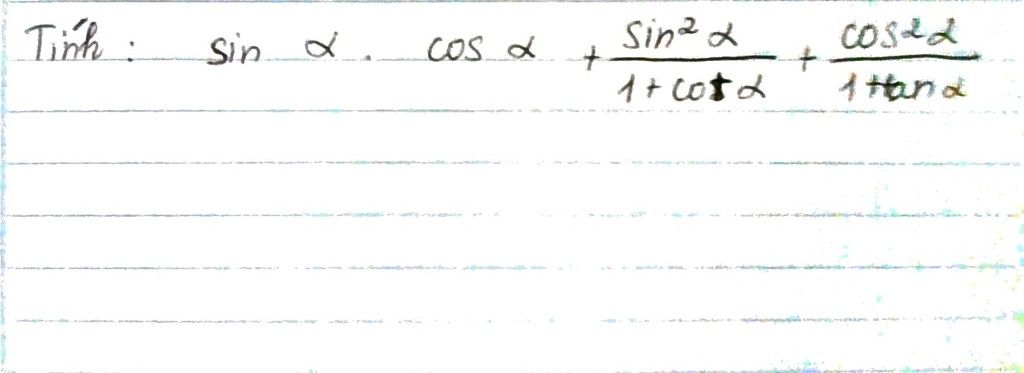 Tính : sin α . cos α + sin² α / 1 + cot α + cos² α / 1 + tan α